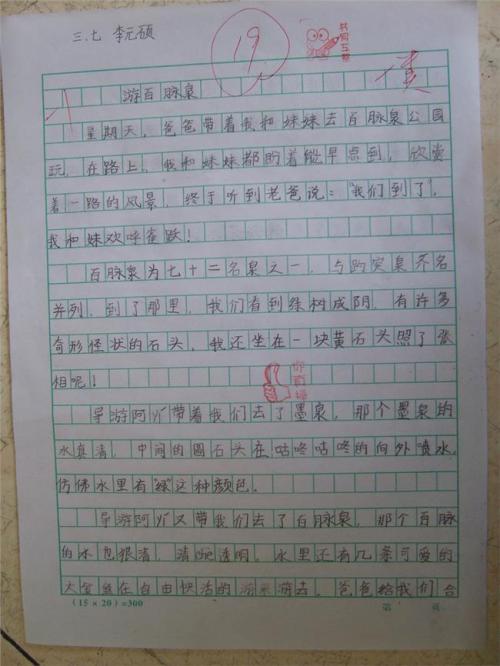 三.七 李元硕
19
游百脉泉
星期天，爸爸带着我和妹妹去百脉泉公园
玩，在路上，我和妹妹都盼着能早点到，欣赏
着一路的风景，终于听到老爸说："我们到了"，
我和妹欢呼雀跃！
百脉泉为七十二名泉之一，与趵突泉齐名
并列，到了那里，我们看到绿树成阴，有许多
奇形怪状的石头，我还坐在一块黄石头照了张
相呢！
你真棒
导游阿姨带着我们去了墨泉，那个墨泉的
水真清，中间的圆石头在咕咚咕咚的向外喷水，
仿佛水里有"绿"这种颜色。
导游阿姨又带我们去了百脉泉，那个百脉
的水也很清，清晰透明，水里还有几条可爱的
大金鱼在自由快活的游来游去，爸爸给我们合
(15×20)=300
第 页